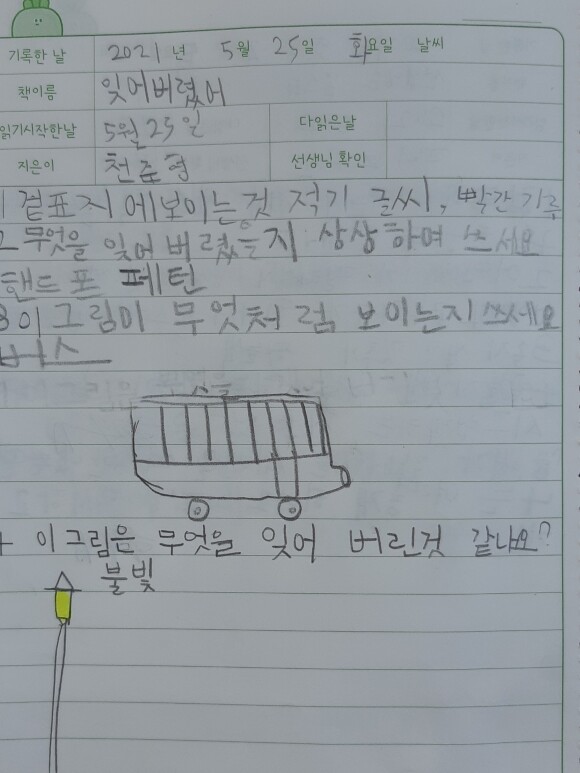 기록한 날 2021년 5월 25일 화요일 날씨
책이름 잊어버렸어
읽기시작한날 5월 25일 다읽은날
지은이 천준형 선생님 확인
1 겉표지에보이는것 적기 글씨, 빡간 기루
2 무엇을 잊어버렸을지 상상하여 쓰세요
핸드폰 페턴
3 이그림이 무엇처럼 보이는지 쓰세요
버스
이그림은 무엇을 잊어 버린것 같나요?
불빛